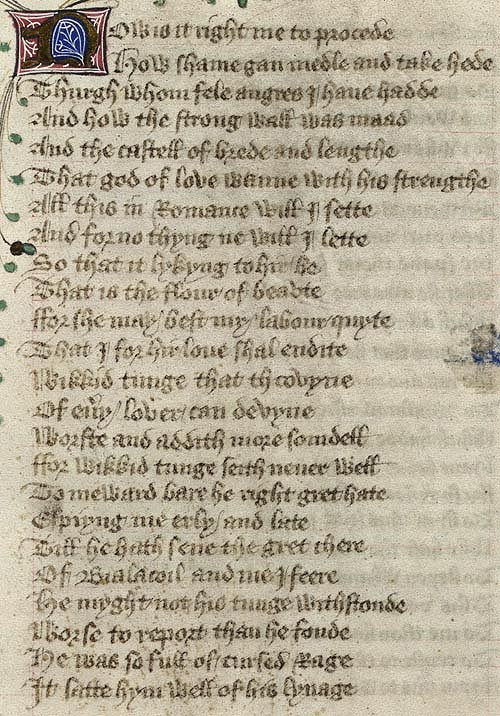 Now is it right me to procede
How shame gan medle and take hede
Thurgh whom fele angres I haue hadde
And how the strong wall was maad
And the castell of brede and lengthe
That god of love wanne with his strengthe
All this in Romance will I sette
And for no thyng ne will I lette
So that it lykyng to hir be
That is the flour of beaute
ffor she may best my labour quyte
That I for hir love shal endite
Wikkid tunge that th covyne
Of eũy lover can devyne
Worste and addith more somdell
ffor wikkid tunge seith never well
To meward bare he right gret hate
Espiyng me erly and late
Till he hath sene the gret chere
Of Bialacoil and me I feere
He myght not his tunge withstonde
Worse to report than he fonde
He was so full of cursed Rage
It satte hym well of his lynage